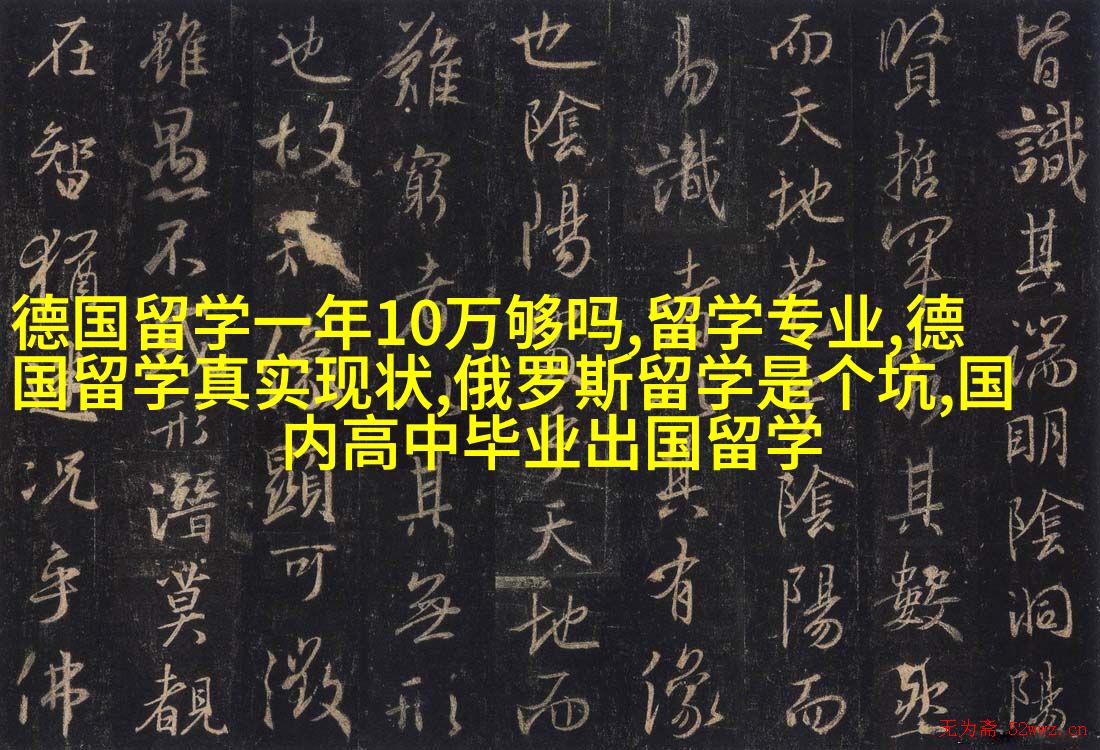 皆識其端明陰洞陽
賢哲罕其數然
而天地苞陰陽而
易識者其有像
也陰陽乎天地而
難窮者其無形
也故知像顯可徵
雖愚不形潛莫覩
在智猶況乎佛
德国留学一年10万够吗,留学专业,德
国留学真实现状,俄罗斯留学是个坑,国
内高中毕业出国留学
无为斋 52wwz.cn